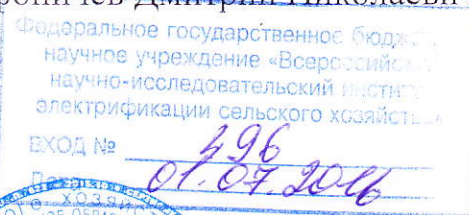 Дмитрий Николаевич
Федеральное государственное
научное учреждение «Всероссийский
научно-исследовательский институт
электрификации сельского хозяйства»
ВХОД № 496
01.07.2016